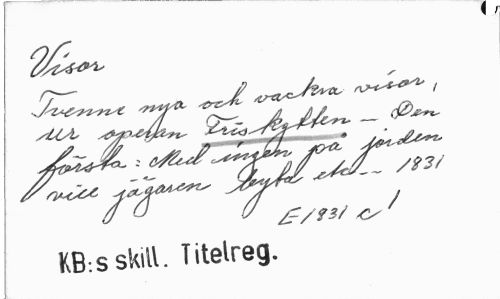 Visor
Tvenne nya och vackra visor,
ur operan Friskytten - Den
första: Med ingen på jorden
vill jägaren byta etc -- 1831
E 1831 c
KB:s skill. Titelreg.